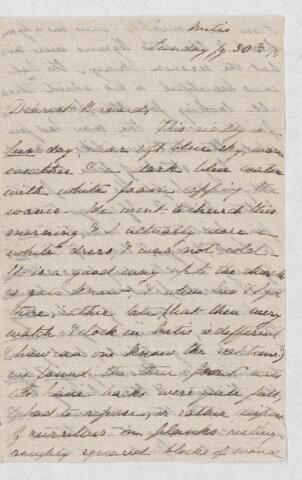 Metis
Sunday Jy. 30th
Dearest Bernard,
This really is a
Sun day, clear soft blue sky, warm
weather & a dark blue water
with white foam capping the
waves. We went to church this
morning, & I actually wore a
white dress, & was not cold.
It is a good way up to the church
as you know, & when we got
there, rather late, (but then every
watch & clock in Metis is different
& how can one know the real time)
we found the
the same backs were quite full,
& had to repose, or rather
on planks resting
roughly squared blocks of wood